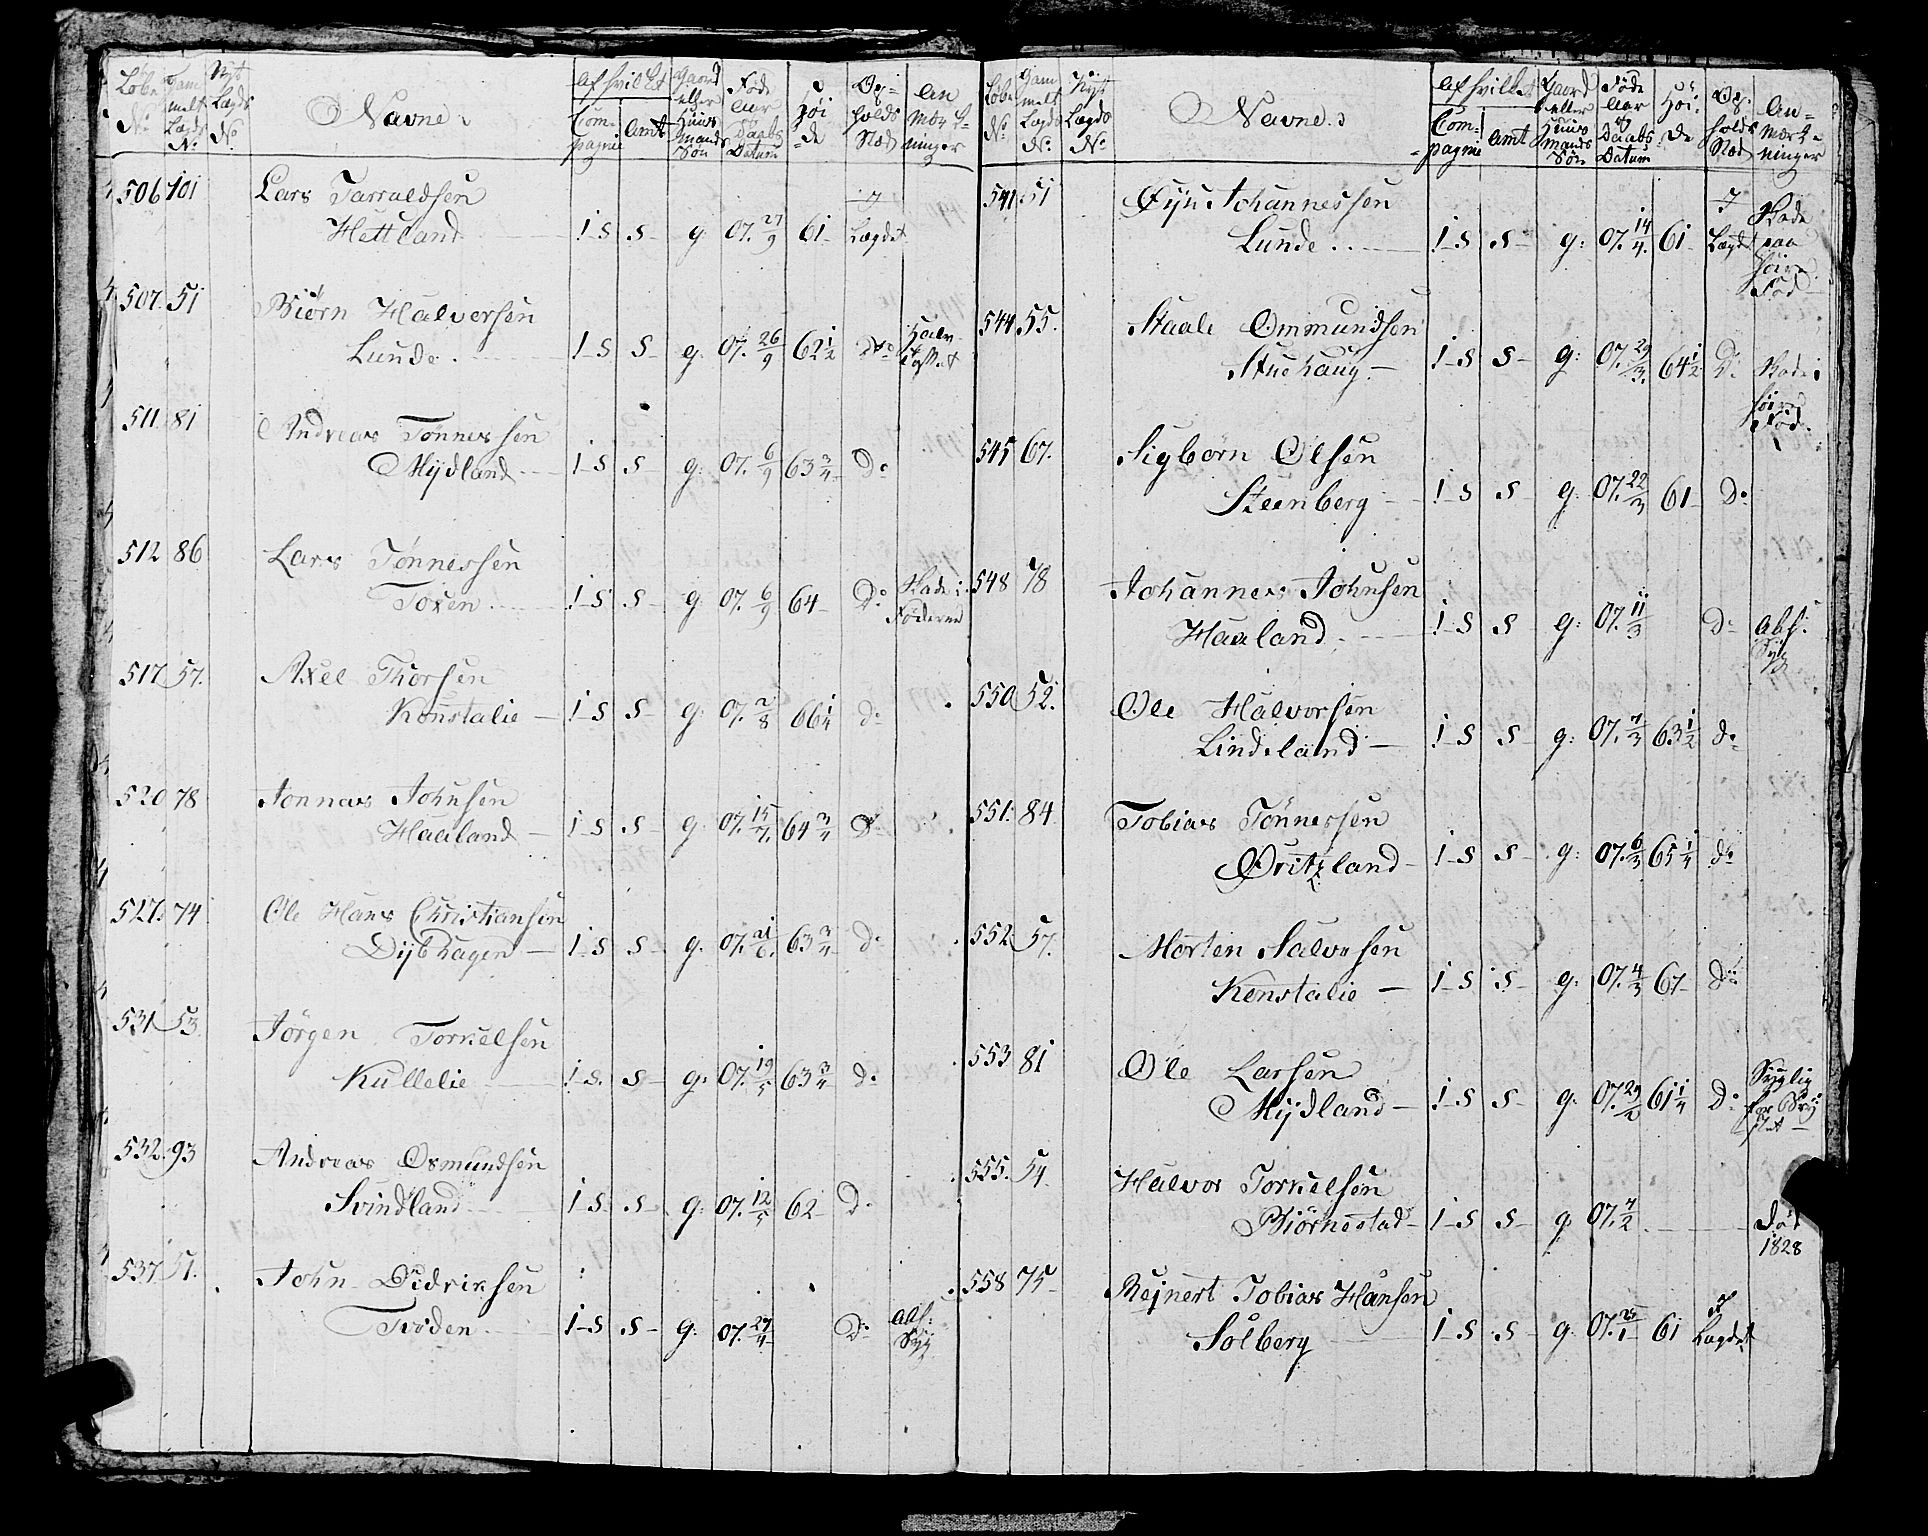 Løbe No. Gam melt Lægds No. Nyt Lægds No. Navne. Af hvilket Com- pagnie Amt Gaard eller Huus mands Søn Føde Aar og Daabs Datum Høi- de Op- holds Sted An mærk- ninger
506 101 Lars Tarraldsen
Hettland 1-S S- g. 07. 27/9 61- I Lægdet
507. 51 Biørn Halvorsen
Lunde. 1-S S- g. 07. 26/9 62 1/2 Do
511. 81 Andreas Tønnessen
Mydland 1-S S- g. 07. 6/9 63 3/4 Do
512 86 Lars Tønnessen
Toxen 1-S S- g. 07. 6/9 64- Do Skade i Fødderne
517 57. Axel Thorsen
Konstalie 1-S S- g. 07. 2/8 66 1/4 do
520 78 Jonnas Johnsen
Haaland 1-S S- g. 07. 15/7 64 3/4 Do
527. 74 Ole Hans Christiansen
Dybhagen 1-S S- g. 07. 21/6 63 3/4 do
531 53 Jørgen Torkelsen
Kullelie 1-S. S- g. 07. 19/5 63 3/4 do
532. 93 Andreas Osmundsen
Svindland 1-S. S- g. 07. 12/5 62- Do
537 51. John Didriksen
Tvøden 1-S S- g. 07. 27/4 Do abs: Syg
Løbe No. Gam melt Lægds No. Nyt Lægds No. Navne. Af hvilket Com- pagnie Amt Gaard eller Huus mands Søn Føde Aar og Daabs Datum Høi- de Op- holds Sted An- mærk- ninger
541 51 Gyn Johannessen
Lunde 1-S S- g: 07. 14/4. 61 I Lægdet Skade paa høire Fod
544 55. Staale Ommundsen
Stuehaug 1-S S- g: 07. 29/3. 64 1/2 Do Skade i høire Fod.
545 67. Sigbørn Olsen
Steenberg 1-S S- g. 07. 22/3 61- Do
548 78 Johannes Johnsen
Haaland. 1-S S g. 07. 11/3 Do abs: Syg
550 52. Ole Halvorsen
Lindeland 1-S S- g: 07. 7/3 63 1/2 do
551. 84 Tobias Tønnessen
Øritzland 1-S S- g. 07. 6/3 65 1/4 do
552. 57. Morten Salvesen
Konstalie 1-S S- g. 07. 4/3 67- Do
553 81 Ole Larsen
Mydland 1-S S- g. 07. 29/2 61 1/4 Do Syglig for Bry stet
555. 54 Halvor Torkelsen
Biørnestad 1-S S- g 07. 7/2 død 1828
558 75 Rejnert Tobias Hansen
Solberg 1-S S- g 07. 25/1 61 I Lægdet